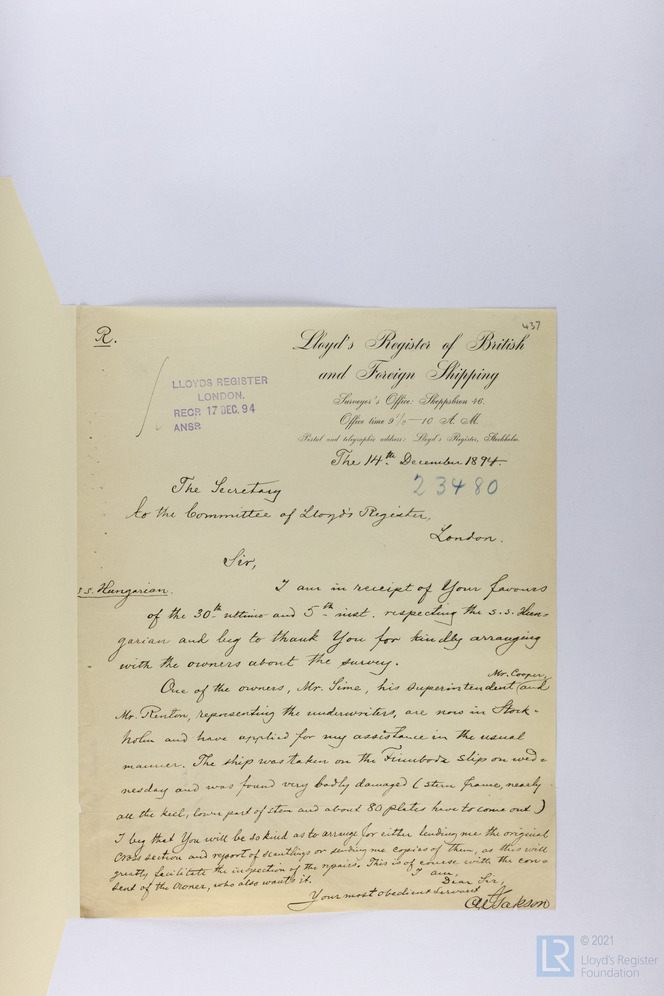 437
R.
Lloyd's Register of British
and Foreign Shipping
Surveyor's Office: Skeppsbron 46.
Office time 9½—10 A. M.
Postal and telegraphic address: Lloyd's Register, Stockholm.
LLOYDS REGISTER
LONDON.
RECR 17 DEC. 94
ANSR
The 14th December 1894.
23480
The Secretary
to the Committee of Lloyd's Register,
London.
Sir,
s.s. Hungarian.
I am in receipt of Your favours
of the 30th ultimo and 5th inst. respecting the s.s. Hun-
garian and beg to thank You for kindly arranging
with the owners about the survey.
One of the owners, Mr. Sime, his superintendent Mr. Cooper, and
Mr. Renton, representing the underwriters, are now in Stock-
holm and have applied for my assistance in the usual
manner. The ship was taken on the Finnboda Slip on wed-
nesday and was found very badly damaged (stern frame, nearly
all the keel, lower part of stem and about 80 plates have to come out)
I beg that You will be so kind as to arrange for either lending me the original
cross section and report of scantlings or sending me copies of them, as this will
greatly facilitate the inspection of the repairs. This is of course with the con-
sent of the Owner, who also wants it.
I am,
Dear Sir,
Your most obedient servant
© 2021
LR
Lloyd's Register
Foundation